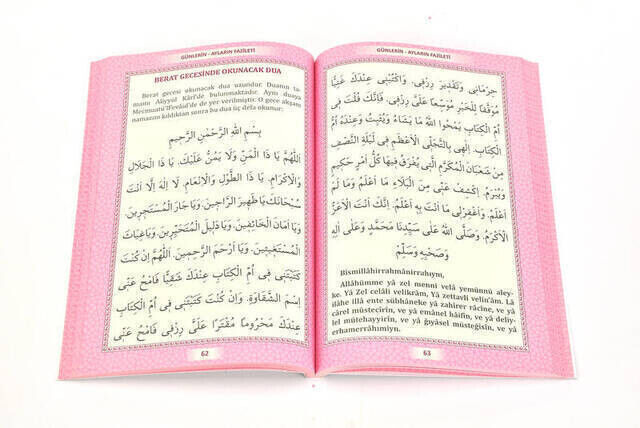 GÜNLERİN - AYLARIN FAZİLETİ
BERAT GECESİNDE OKUNACAK DUA
Berat gecesi okunacak dua uzundur. Duanın ta-
mamı Aliyyül Kârî'de bulunmaktadır. Aynı duaya
Mecmuatü'lfevâid'de de yer verilmiştir. O gece akşam
namazını kıldıktan sonra bu dua üç defa okunur:
بِسْمِ اللّٰهِ الرَّحْمٰنِ الرَّحِيمِ
اَللّٰهُمَّ يَا ذَا الْمَنِّ وَلَا يَمُنُّ عَلَيْكَ. يَا ذَا الْجَلَالِ
وَالْاِكْرَامِ. يَا ذَا الطَّوْلِ وَالْاِنْعَامِ. لَا اِلٰهَ اِلَّا اَنْتَ
سُبْحَانَكَ يَا ظَهِيرَ الرَّاجِينَ. وَيَا جَارَ الْمُسْتَجِيرِينَ.
وَيَا اَمَانَ الْخَائِفِينَ. وَيَا دَلِيلَ الْمُتَحَيِّرِينَ. وَيَا غِيَاثَ
الْمُسْتَغِيثِينَ. وَيَا اَرْحَمَ الرَّاحِمِينَ. اَللّٰهُمَّ اِنْ كُنْتَ
كَتَبْتَنِى فِى اُمِّ الْكِتَابِ عِنْدَكَ شَقِيًّا فَامْحُ عَنِّى
اِسْمَ الشَّقَاوَةِ. وَاِنْ كُنْتَ كَتَبْتَنِى فِى اُمِّ الْكِتَابِ
عِنْدَكَ مَحْرُومًا مُقَتَّرًا عَلَىَّ رِزْقِى فَامْحُ عَنِّى
62
GÜNLERİN - AYLARIN FAZİLETİ
حِرْمَانِى وَتَقْتِيرَ رِزْقِى. وَاكْتُبْنِى عِنْدَكَ غَنِيًّا
مُوَفَّقًا لِلْخَيْرِ مُوَسَّعًا عَلَىَّ رِزْقِى. فَاِنَّكَ قُلْتَ فِى
اُمِّ الْكِتَابِ يَمْحُوا اللّٰهُ مَا يَشَاءُ وَيُثْبِتُ وَعِنْدَهُ اُمُّ
الْكِتَابِ. اِلٰهِى بِالتَّجَلِّى الْاَعْظَمِ فِى لَيْلَةِ النِّصْفِ
مِنْ شَعْبَانَ الْمُكَرَّمِ الَّتِى يُفْرَقُ فِيهَا كُلُّ اَمْرٍ حَكِيمٍ
وَيُبْرَمُ. اِكْشِفْ عَنِّى مِنَ الْبَلَاءِ مَا اَعْلَمُ وَمَا لَمْ
اَعْلَمُ. وَاغْفِرْ لِى مَا اَنْتَ بِهِ اَعْلَمُ. اِنَّكَ اَنْتَ الْاَعَزُّ
الْاَكْرَمُ. وَصَلَّى اللّٰهُ عَلَى سَيِّدِنَا مُحَمَّدٍ وَعَلٰى اٰلِهِ
وَصَحْبِهِ وَسَلَّمَ
Bismillâhirrahmânirrahıym,
Allâhümme yâ zel menni velâ yemünnü aley-
ke. Yâ Zel celâli velikrâm, Yâ zettavli velin'âm. Lâ
ilâhe illâ ente sübhâneke yâ zahîrer râcîne, ve yâ
cârel müstecîrîn, ve yâ emânel hâifîn, ve yâ deliy-
lel mütehayyirîn, ve yâ ğıyâsel müsteğîsîn, ve yâ
erhamerrâhimîyn.
63